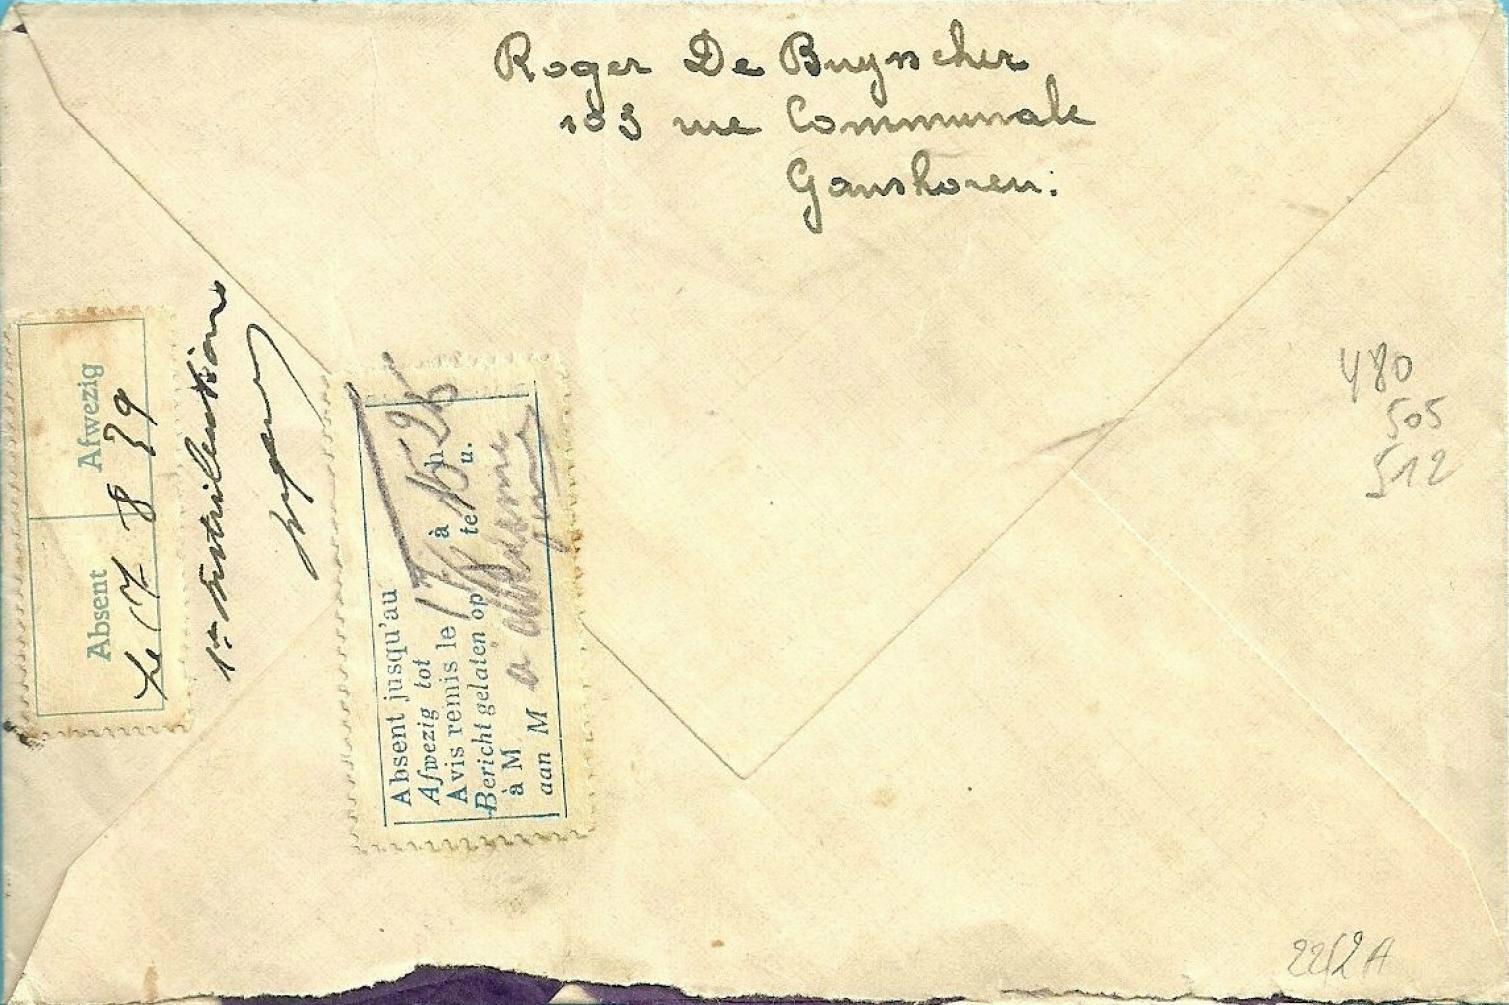 Roger De Buysscher
103 rue Communale
Ganshoren:
Absent Afwezig
Le 17 8 39
1re distribution
Absent jusqu'au
Afwezig tot
Avis remis le 17 à h
Bericht gelaten op te u.
à M
aan M
480
505
512
22/2A